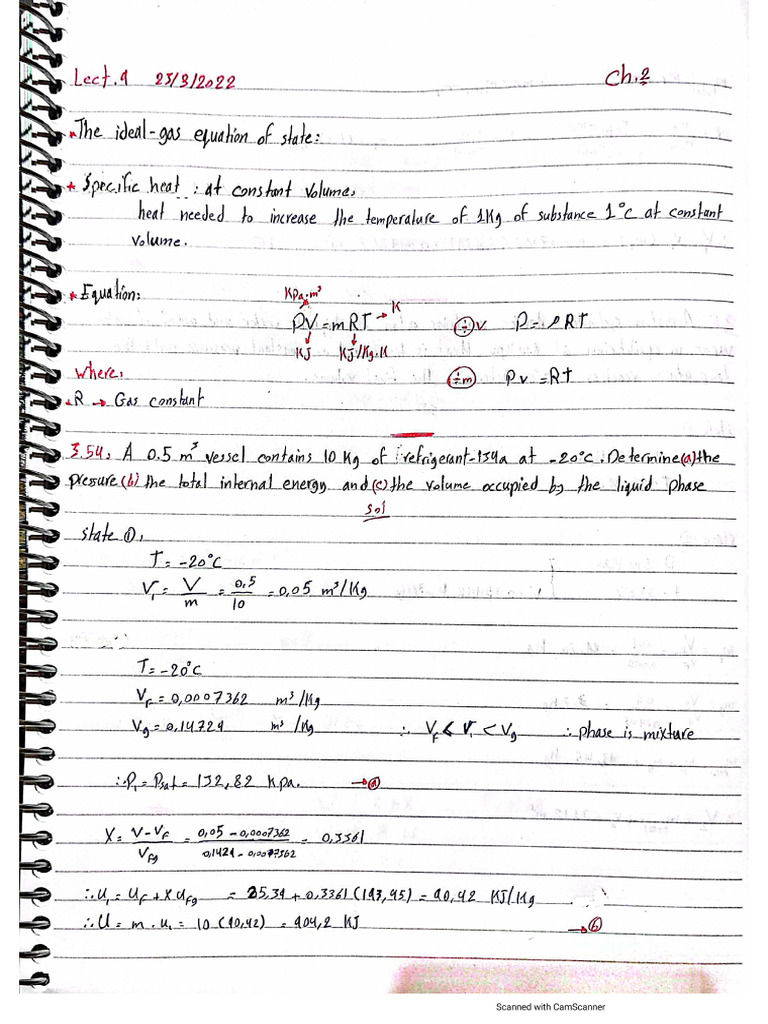 Lect.9 25/3/2022 Ch.2
* The ideal-gas equation of state:
* Specific heat : at constant volume,
heat needed to increase the temperature of 1Kg of substance 1°C at constant
volume.
* Equation:
Kpa.m³
PV = mRT → K ÷v P = ρRT
KJ KJ/Kg.K
where, ÷m Pv = RT
. R → Gas constant
3.54, A 0.5 m³ vessel contains 10 Kg of refrigerant-134a at -20°C. Determine (a) the
pressure (b) the total internal energy and (c) the volume occupied by the liquid phase
sol
state ①,
T = -20°C
V₁ = V/m = 0,5/10 = 0,05 m³/Kg
T = -20°C
Vf = 0,0007362 m³/Kg
Vg = 0,14729 m³/Kg ∴ Vf < V₁ < Vg ∴ phase is mixture
∴ P₁ = Psat = 132,82 Kpa. → ⓐ
X = V-Vf/Vfg = 0,05 - 0,0007362/0,1429 - 0,0077362 = 0,3361
∴ u₁ = uf + X ufg = 25,39 + 0,3361 (193,45) = 90,42 KJ/Kg
∴ U = m . u₁ = 10 (90,42) = 904,2 KJ → ⓑ
Scanned with CamScanner